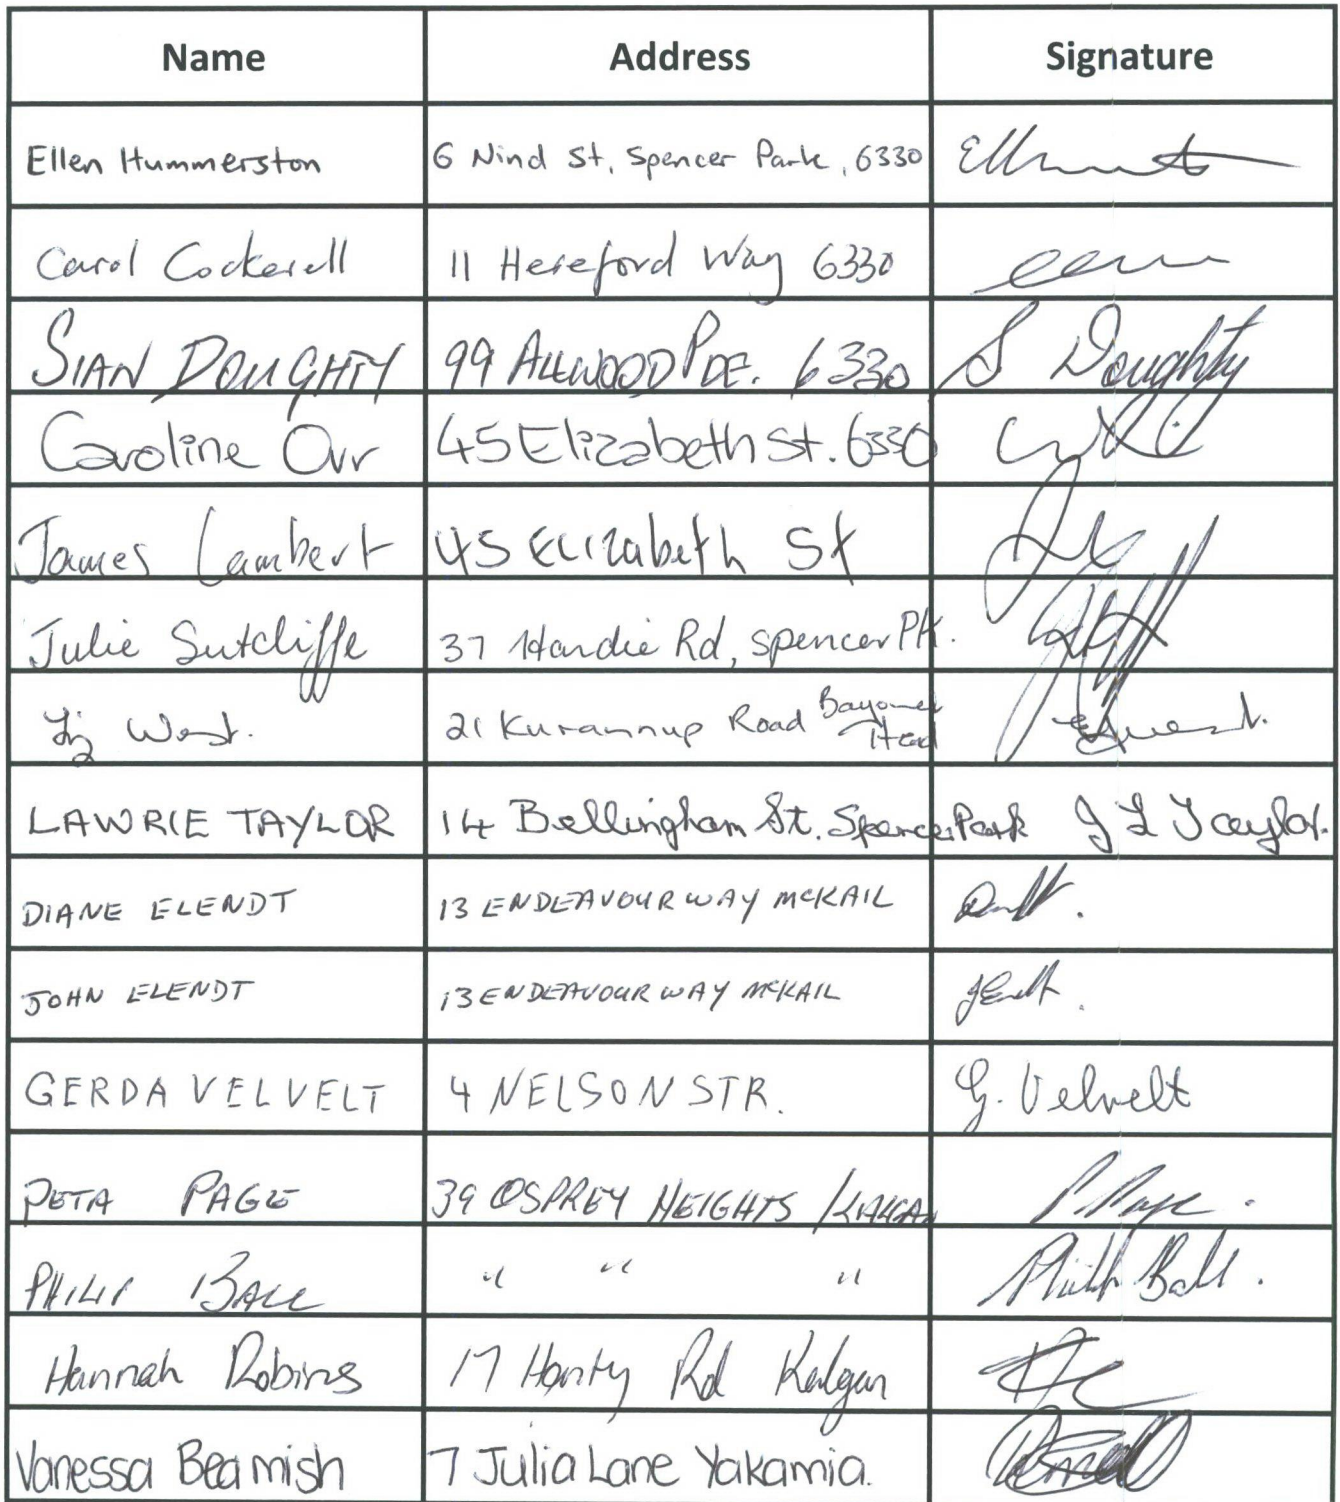 Name Address Signature
Ellen Hummerston 6 Nind St, Spencer Park, 6330
Carol Cockerell 11 Hereford Way 6330
SIAN DOUGHTY 99 ALLWOOD PDE. 6330 S Doughty
Caroline Orr 45 Elizabeth St. 6330
James Lambert 45 Elizabeth St
Julie Sutcliffe 37 Hardie Rd, Spencer PK.
Liz West. 21 Kurannup Road Bayonet Head
LAWRIE TAYLOR 14 Bellingham St. Spencer Park J L Taylor.
DIANE ELENDT 13 ENDEAVOUR WAY MCKAIL
JOHN ELENDT 13 ENDEAVOUR WAY MCKAIL
GERDA VELVELT 4 NELSON STR. G. Velvelt
PETA PAGE 39 OSPREY HEIGHTS / KALGAN P Page.
PHILIP BALL " " " Philip Ball.
Hannah Robins 17 Rd Kalgan
Vanessa Beamish 7 Julia Lane Yakamia.